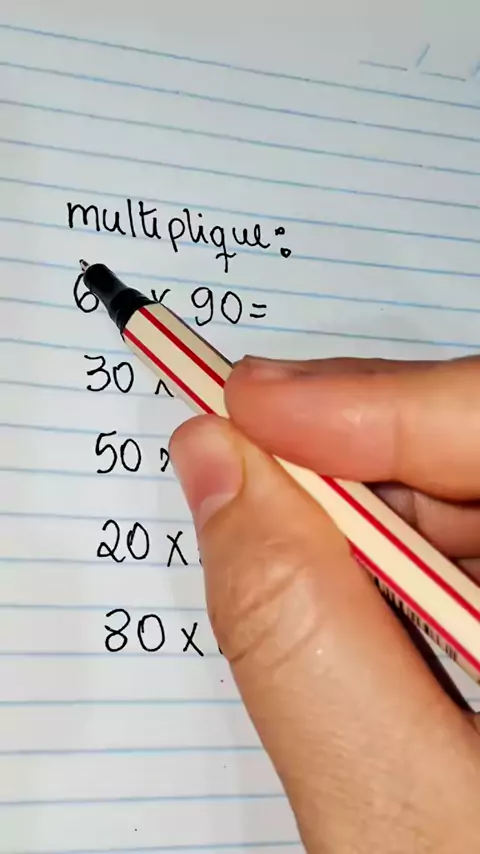 multiplique:
6 x 90=
30 x
50 x
20 x
80 x